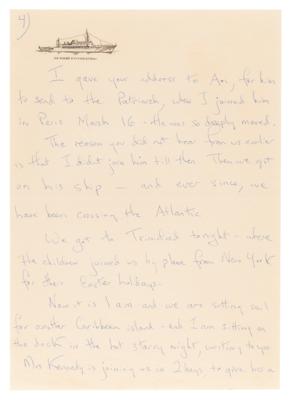 4)
I gave your address to Ari, for him
to send to the Patriarch, when I joined him
in Paris March 16 - He was so deeply moved.
The reason you did not hear from us earlier
is that I didnt join him till then. Then we got
on his ship - and ever since, we
have been crossing the Atlantic
We got to Trinidad tonight - where
the children joined us by plane from New York
for their Easter holidays -
Now it is 1 am and we are setting sail
for another Caribbean island - and I am sitting on
the deck in the hot starry night, writing to you
Mrs Kennedy is joining us in 2 days to give her a